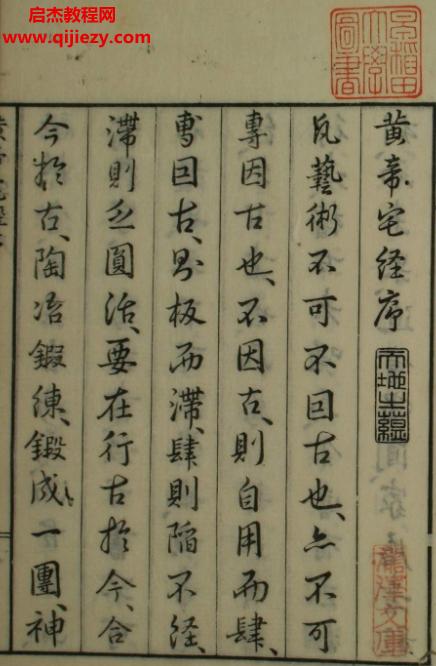 启杰教程网
www.qijiezy.com
早稲田大學圖書
黄帝宅经序
凡藝術不可不囙古也、亦不可
專因古也、不因古、則自用而肆、
專囙古、則板而滞、肆則陷不经、
滞則乏圓活、要在行古於今、合
今於古、陶冶鍜練、鍜成一團、神